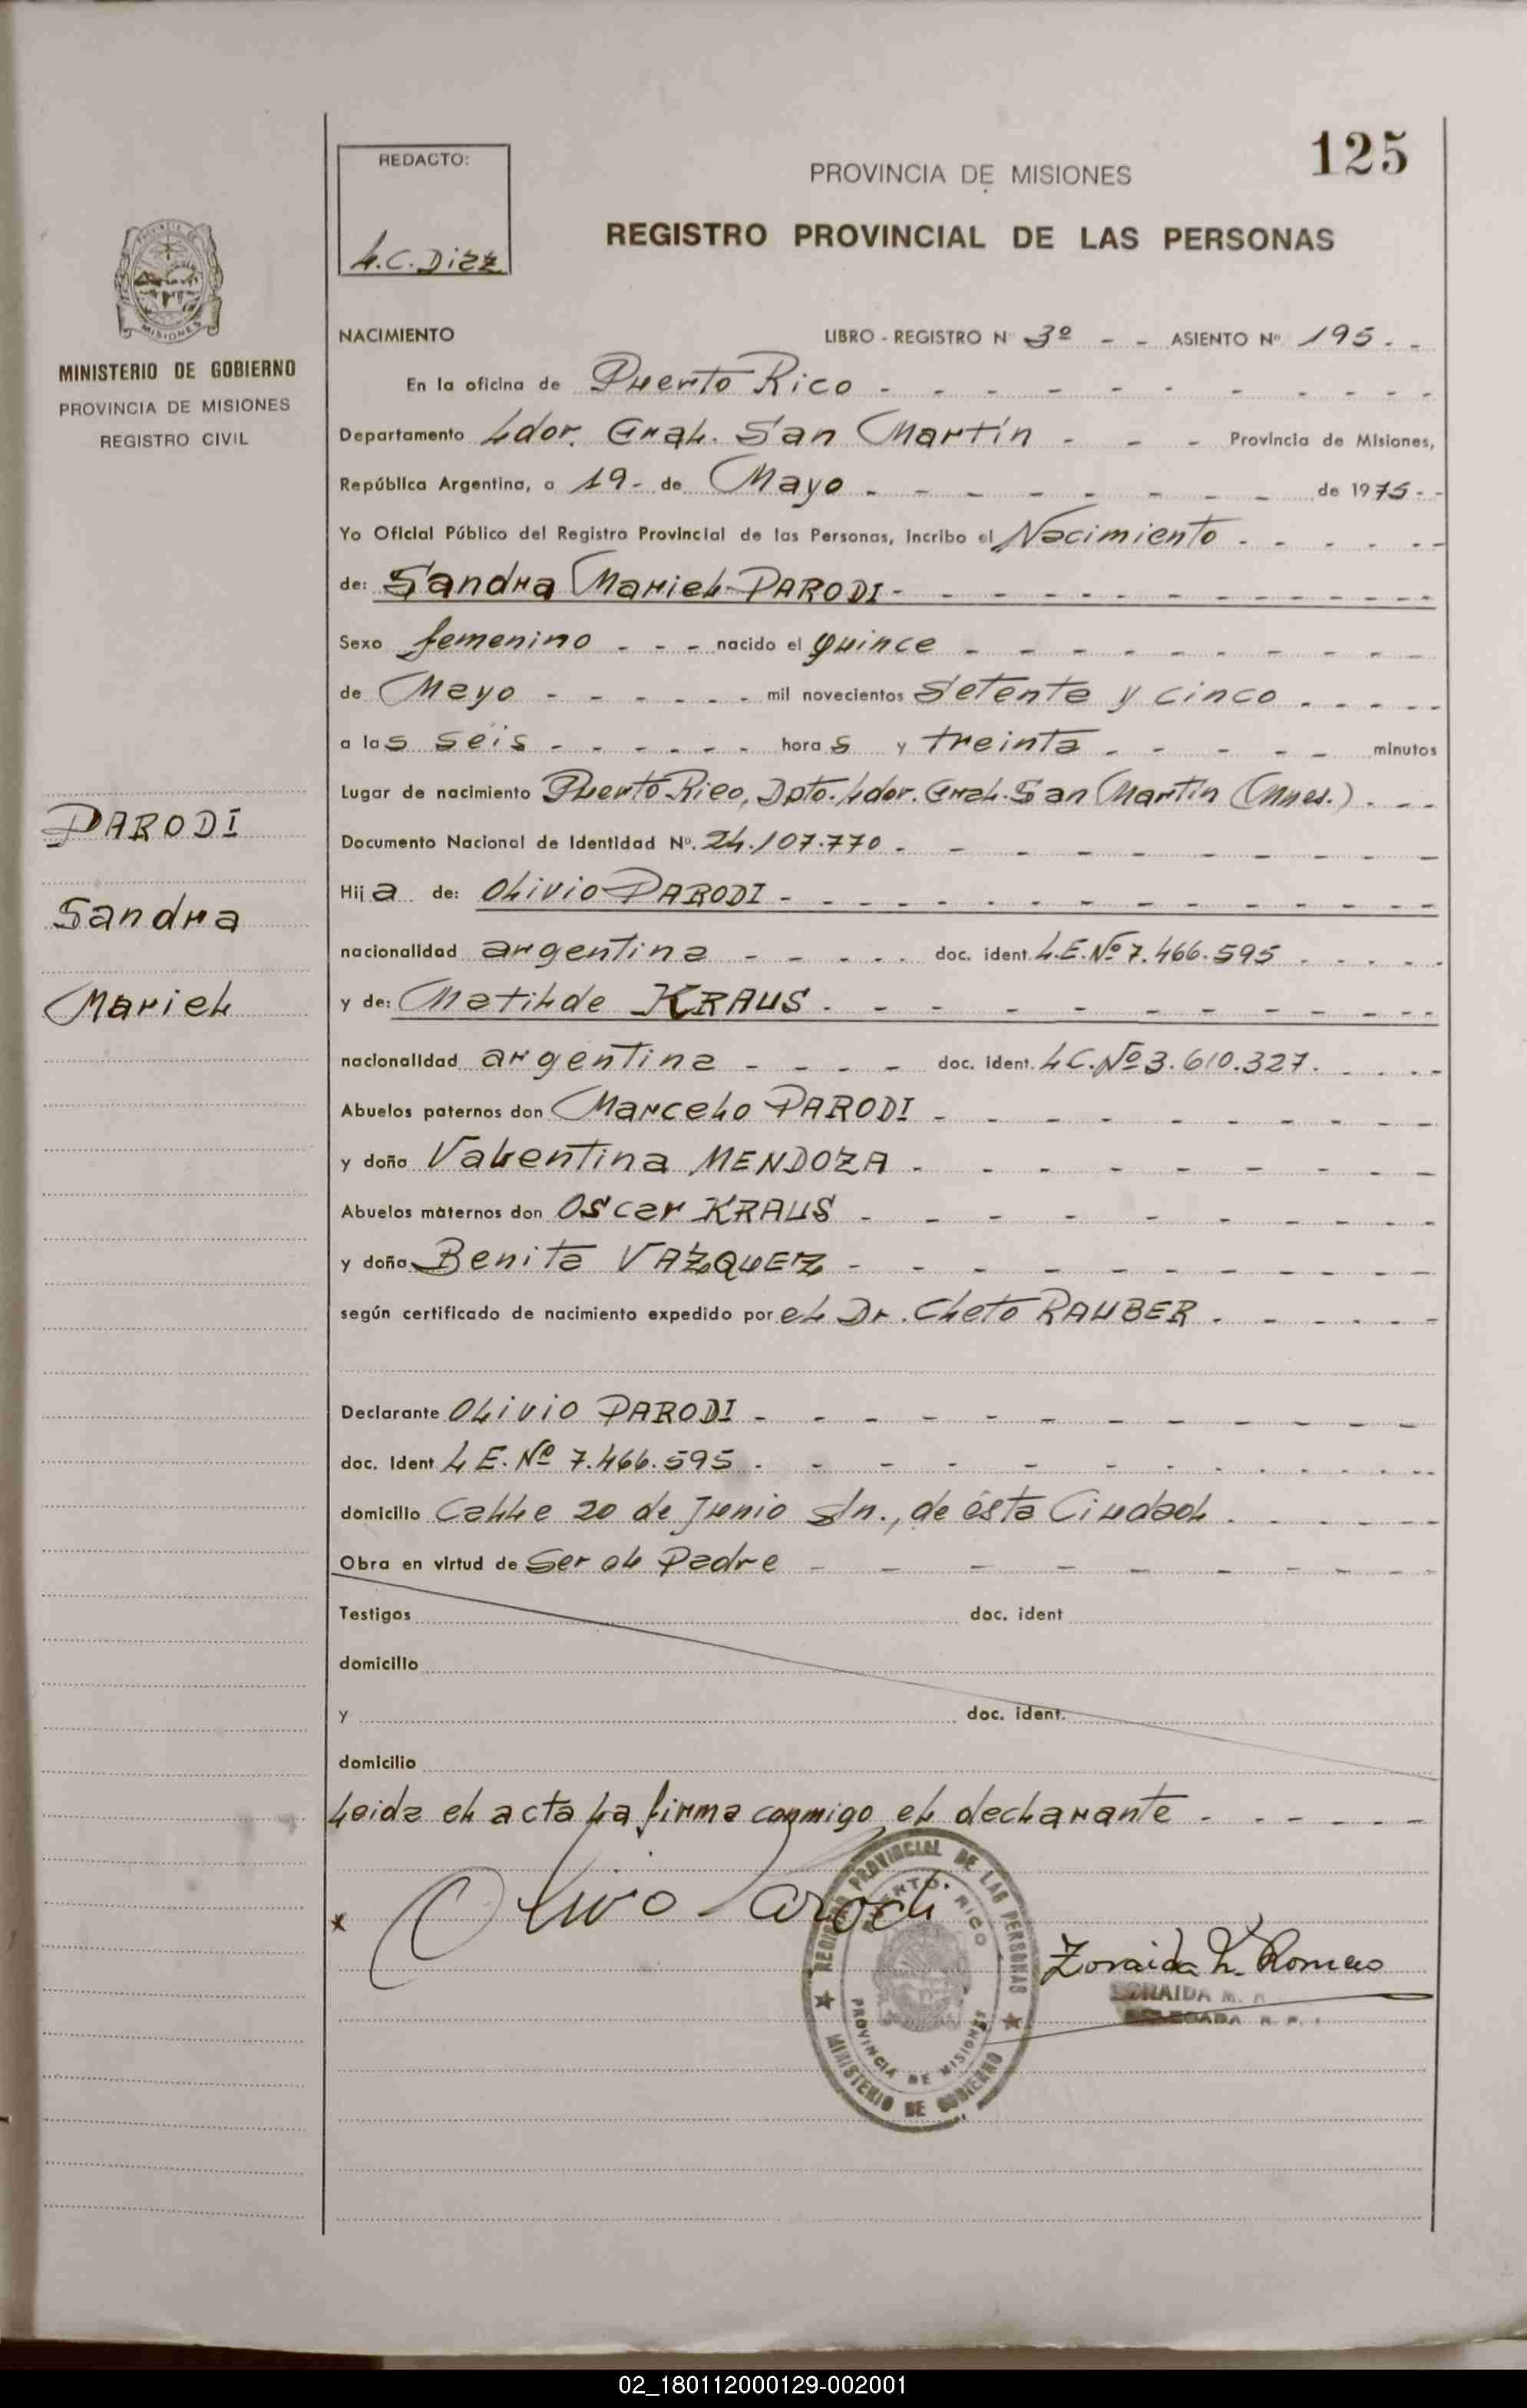 125
REDACTO:
L.C. Diez
PROVINCIA DE MISIONES
REGISTRO PROVINCIAL DE LAS PERSONAS
MISIONES
MINISTERIO DE GOBIERNO
PROVINCIA DE MISIONES
REGISTRO CIVIL
PARODI
Sandra
Mariel
NACIMIENTO LIBRO - REGISTRO Nº 3º - - ASIENTO Nº 195 - -
En la oficina de Puerto Rico
Departamento Ldor. Gral. San Martín - - - Provincia de Misiones,
República Argentina, a 19 - de Mayo - de 1975 - -
Yo Oficial Público del Registro Provincial de las Personas, incribo el Nacimiento
de: Sandra Mariel PARODI
Sexo femenino - - - nacido el quince
de Mayo - mil novecientos Setenta y cinco
a las seis - horas y treinta - minutos
Lugar de nacimiento Puerto Rico, Dpto. Ldor. Gral. San Martín (Mnes.)
Documento Nacional de Identidad Nº. 24.107.770
Hija de: Olivio PARODI
nacionalidad argentina - doc. ident. L.E. Nº 7.466.595
y de: Matilde KRAUS
nacionalidad argentina - doc. ident. L.C. Nº 3.610.327
Abuelos paternos don Marcelo PARODI
y doña Valentina MENDOZA
Abuelos maternos don Oscar KRAUS
y doña Benita VAZQUEZ
según certificado de nacimiento expedido por el Dr. Cleto RAUBER
Declarante Olivio PARODI
doc. Ident L.E. Nº 7.466.595
domicilio Calle 20 de Junio s/n., de ésta Ciudad
Obra en virtud de Ser el Padre
Testigos doc. ident
domicilio
y doc. ident.
domicilio
Leida el acta la firma conmigo el declarante
x Olivio Parodi
REGISTRO PROVINCIAL DE LAS PERSONAS
PUERTO RICO
PROVINCIA DE MISIONES
MINISTERIO DE GOBIERNO
Zoraida M. Romero
ZORAIDA M. R
DELEGADA R. P.
02_180112000129-002001